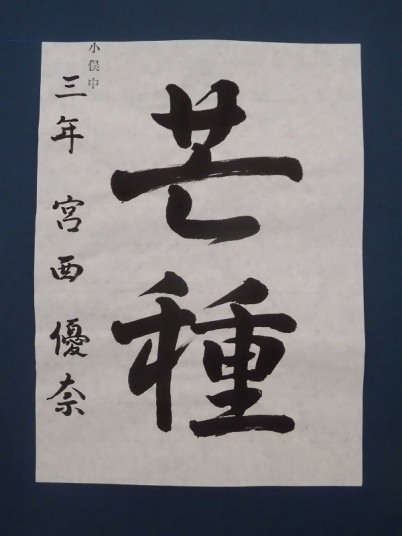 芒種
小俣中
三年 宮西優奈